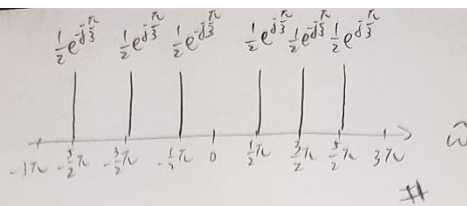 1/2 e^-jπ/3 1/2 e^-jπ/3 1/2 e^-jπ/3 1/2 e^-jπ/3 1/2 e^-jπ/3 1/2 e^-jπ/3
-3π -5/2π -3/2π -1/2π 0 1/2π 3/2π 5/2π 3π ω̂
#